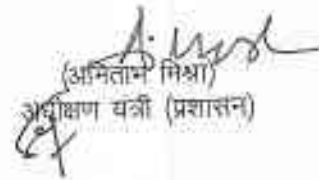 (अमिताभ मिश्रा)
अधीक्षण यंत्री (प्रशासन)